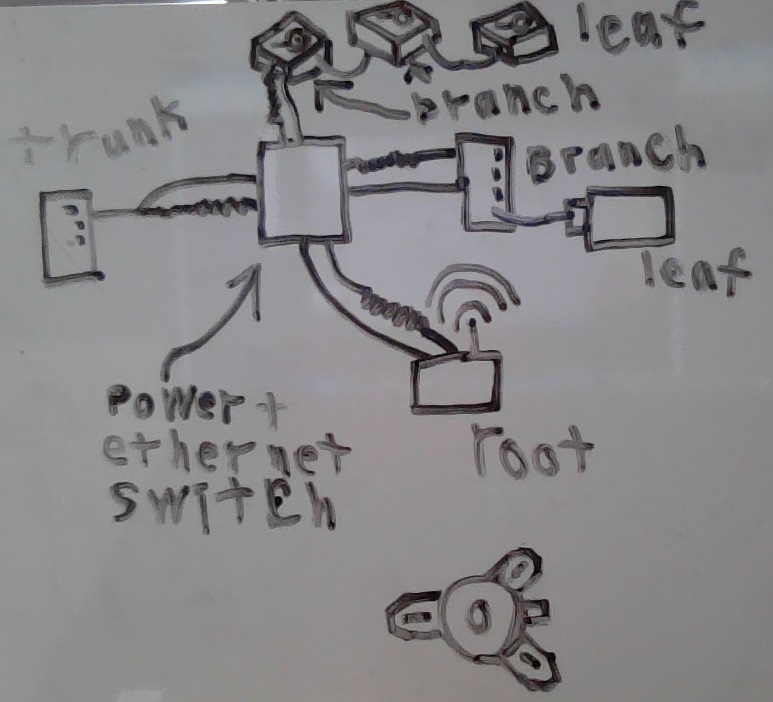 leaf
branch
trunk
Branch
leaf
Power +
ethernet
switch
root